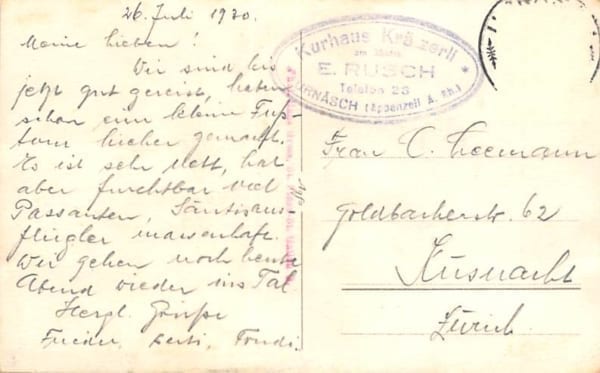 26. Juli 1930.
Meine Lieben!
Wir sind bis
jetzt gut gereist, haben
schon eine kleine Fuß-
tour hieher gemacht.
Es ist sehr nett, hat
aber furchtbar viel
Passanten, Säntisaus-
flügler massenhaft.
Wir gehen noch heute
Abend wieder ins Tal
Herzl. Grüße
Frieda,
Kurhaus Kräzerli
E. RUSCH
Telefon 23
URNÄSCH (Appenzell A. Rh.)
Frau C.
Goldbacherstr. 62
Küsnacht
Zürich